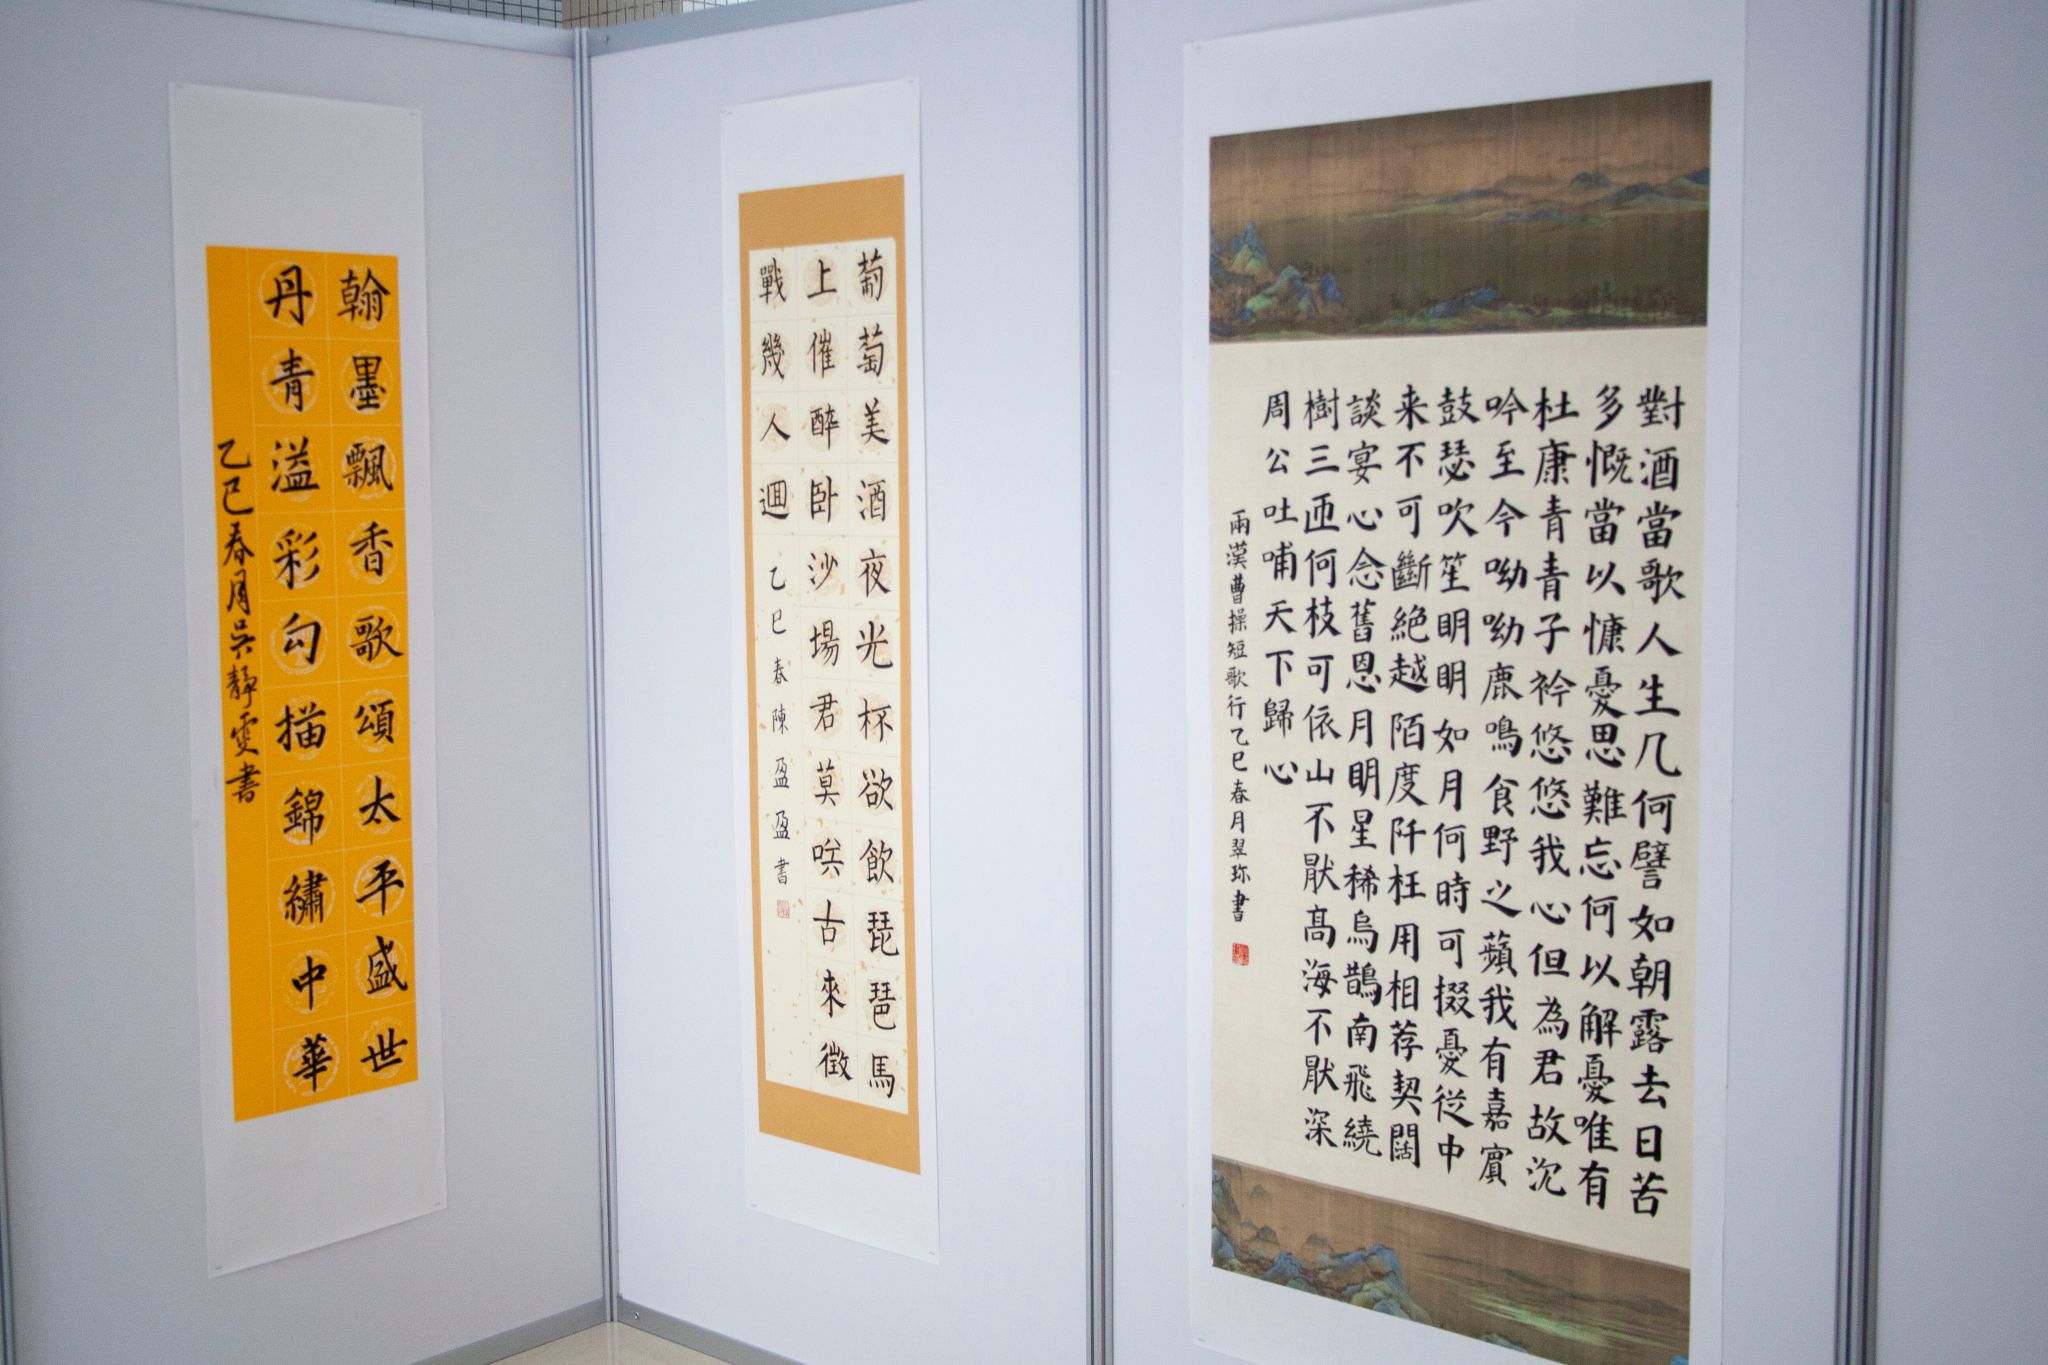 翰墨飄香歌頌太平盛世
丹青溢彩勾描錦繡中華
乙巳春月吳靜雯書
葡萄美酒夜光杯欲飲琵琶馬
上催醉卧沙場君莫咲古來徵
戰幾人迴
乙巳春陳盈盈書
對酒當歌人生几何譬如朝露去日苦
多慨當以慷憂思難忘何以解憂唯有
杜康青青子衿悠悠我心但為君故沉
吟至今呦呦鹿鳴食野之蘋我有嘉賓
鼓瑟吹笙眀眀如月何時可掇憂從中
来不可斷絕越陌度阡枉用相荐契闊
談宴心念舊恩月眀星稀烏鵲南飛繞
樹三匝何枝可依山不猒髙海不猒深
周公吐哺天下歸心
兩漢曹操短歌行乙巳春月翠珎書